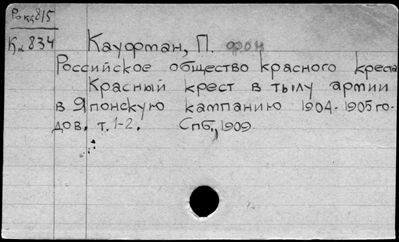 Рокк815
Кн 834
Кауфман, П. фон
Российское общество красного креста
Красный крест в тылу армии
в Японскую кампанию 1904-1905 го-
дов. т. 1-2. Спб., 1909